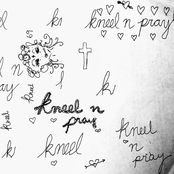 l k kneel n pray
n
pray
kneel
l k
kneel
kneel n
pray
k kneel
kneel
n
pray